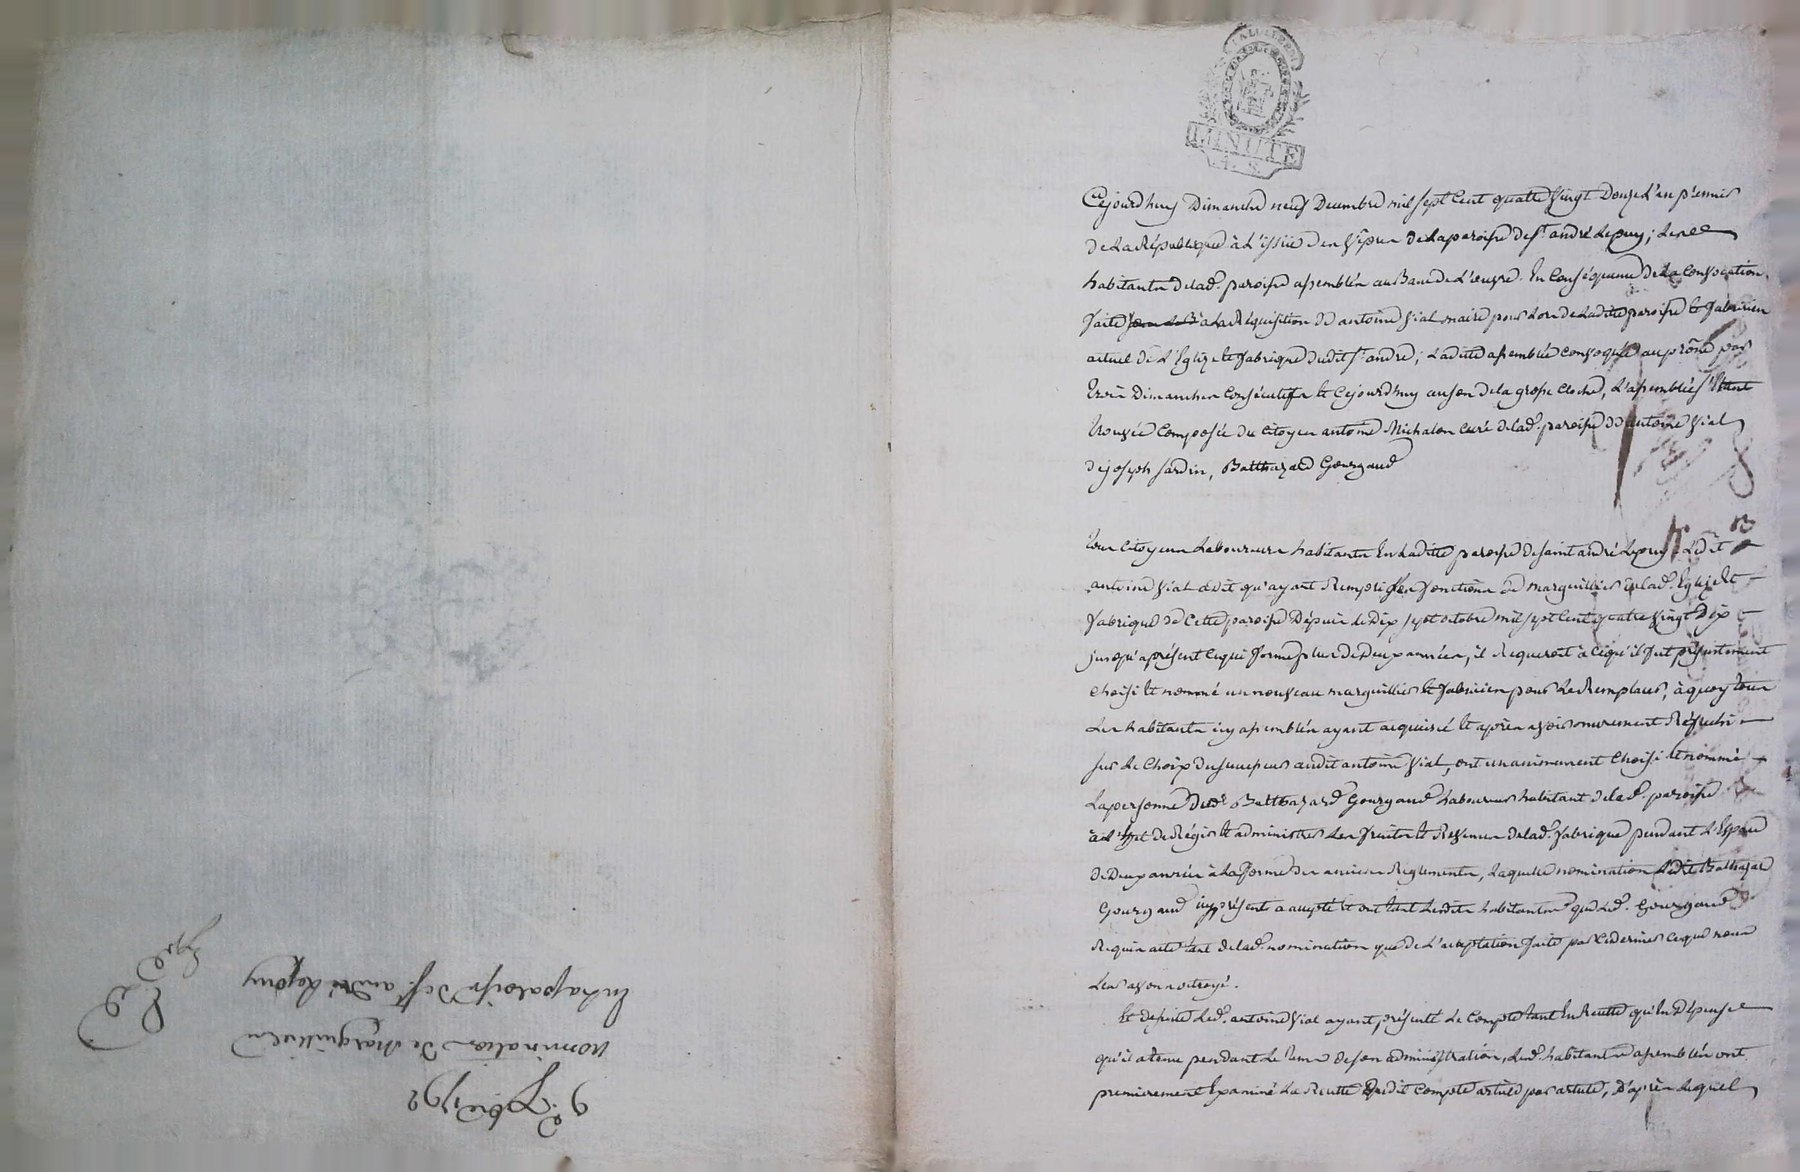 9 Xbre 1792
nomination de marguillier
En la paroisse de St. andré Lepuy
MINUTE
4. S.
Cejourdhuy Dimanche neuf Decembre mil sept Cent quatre Vingt Douze L'an p'emier
de La République à L'issüe des Vêpres de la paroisse de St. andré Lepuy, Les
habitants de lad. paroisse assemblés au Banc de L'œuvre. En Conséquence de La Convocation
faitte a La Réquisition de antoine Vial maire pour Lors de Laditte paroisse et fabricien
actuel de L'Eglize et fabrique dudit St. andré; Laditte assemblée Convoquée au prône par
trois Dimanches Consécutifs et Cejourdhuy au son de la grosse Cloche, L'assemblée s'Etant
trouvée Composée du Citoyen antoine Michalon Curé de lad. paroisse de antoine Vial
de joseph jardin, Balthazard Gourgaud
tous Citoyens Laboureurs habitants En Laditte paroisse de saint andré Lepuy Ledit
antoine Vial a dit qu'ayant Rempli les fonctions de marguillier de lad. Eglize Et
fabrique de Cette paroisse Depuis Le Dix sept octobre mil sept Cent quatre Vingt Dix
jusqu'aprésent Ce qui forme plus de Deux années, il Requeroit à Ce qu'il fut présentement
Choisi et nommé un nouveau marguillier et fabricien pour Le Remplacer, à quoy tous
Les habitants icy assemblés ayant acquiescé et après avoir murement Réfléchi
sur Le Choix du successeur audit antoine Vial, ont unanimement Choisi et nommé
La personne dud. Balthazard Gourgaud Laboureur habitant de lad. paroisse
à L'effet de Régir et administrer Les fruits et Revenus de lad. fabrique pendant L'Espace
de Deux années à La forme des anciens Reglements, Laquelle nomination Ledit Balthazard
Gourgaud icy présent a accepté et ont tant Lesdits habitants que Led. Gourgaud
Requis acte tant de lad. nomination que de L'acceptation faite par Ce dernier Ce que nous
Leur avons octroyé.
Et depuis Led. antoine Vial ayant présenté Le Compte tant En Recette qu'En Dépense
qu'il a tenu pendant Le tems de son administration, Lesd. habitants assemblés ont
premierement Examiné La Recette dudit Compte article par article, D'après Lequel